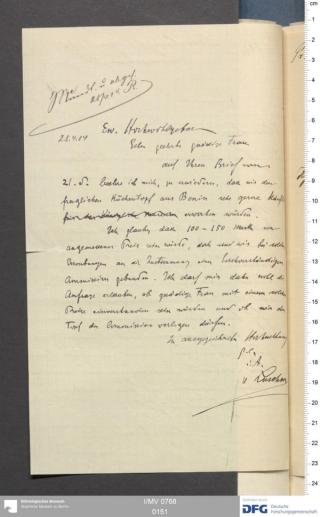 28.4.04
Ew. Hochwohlgeboren
Sehr geehrte gnädige Frau
auf Ihren Brief vom
21. d. beehre ich mich, zu erwidern, dass wir den
fraglichen aus Benin sehr gerne
erwerben würden.
Ich glaube, dass 100 – 150 Mark ein
angemessener Preis sein würde, doch sind wir bei solchen
Erwerbungen an die Zustimmung einer Sachverständigen
Commission gebunden. Ich darf mir daher wohl die
Anfrage erlauben, ob gnädige Frau mit einem solchen
Preise einverstanden sein würden und ob wir den
Topf der Commission vorlegen dürfen.
In ausgezeichneter Hochachtung
I. A.
v Luschan
Ethnologisches Museum
Staatliche Museen zu Berlin
I/MV 0766
0151
DFG
Deutsche
Forschungsgemeinschaft
cm
1
2
3
4
5
6
7
8
9
10
11
12
13
14
15
16
17
18
19
20
21
22
23
24